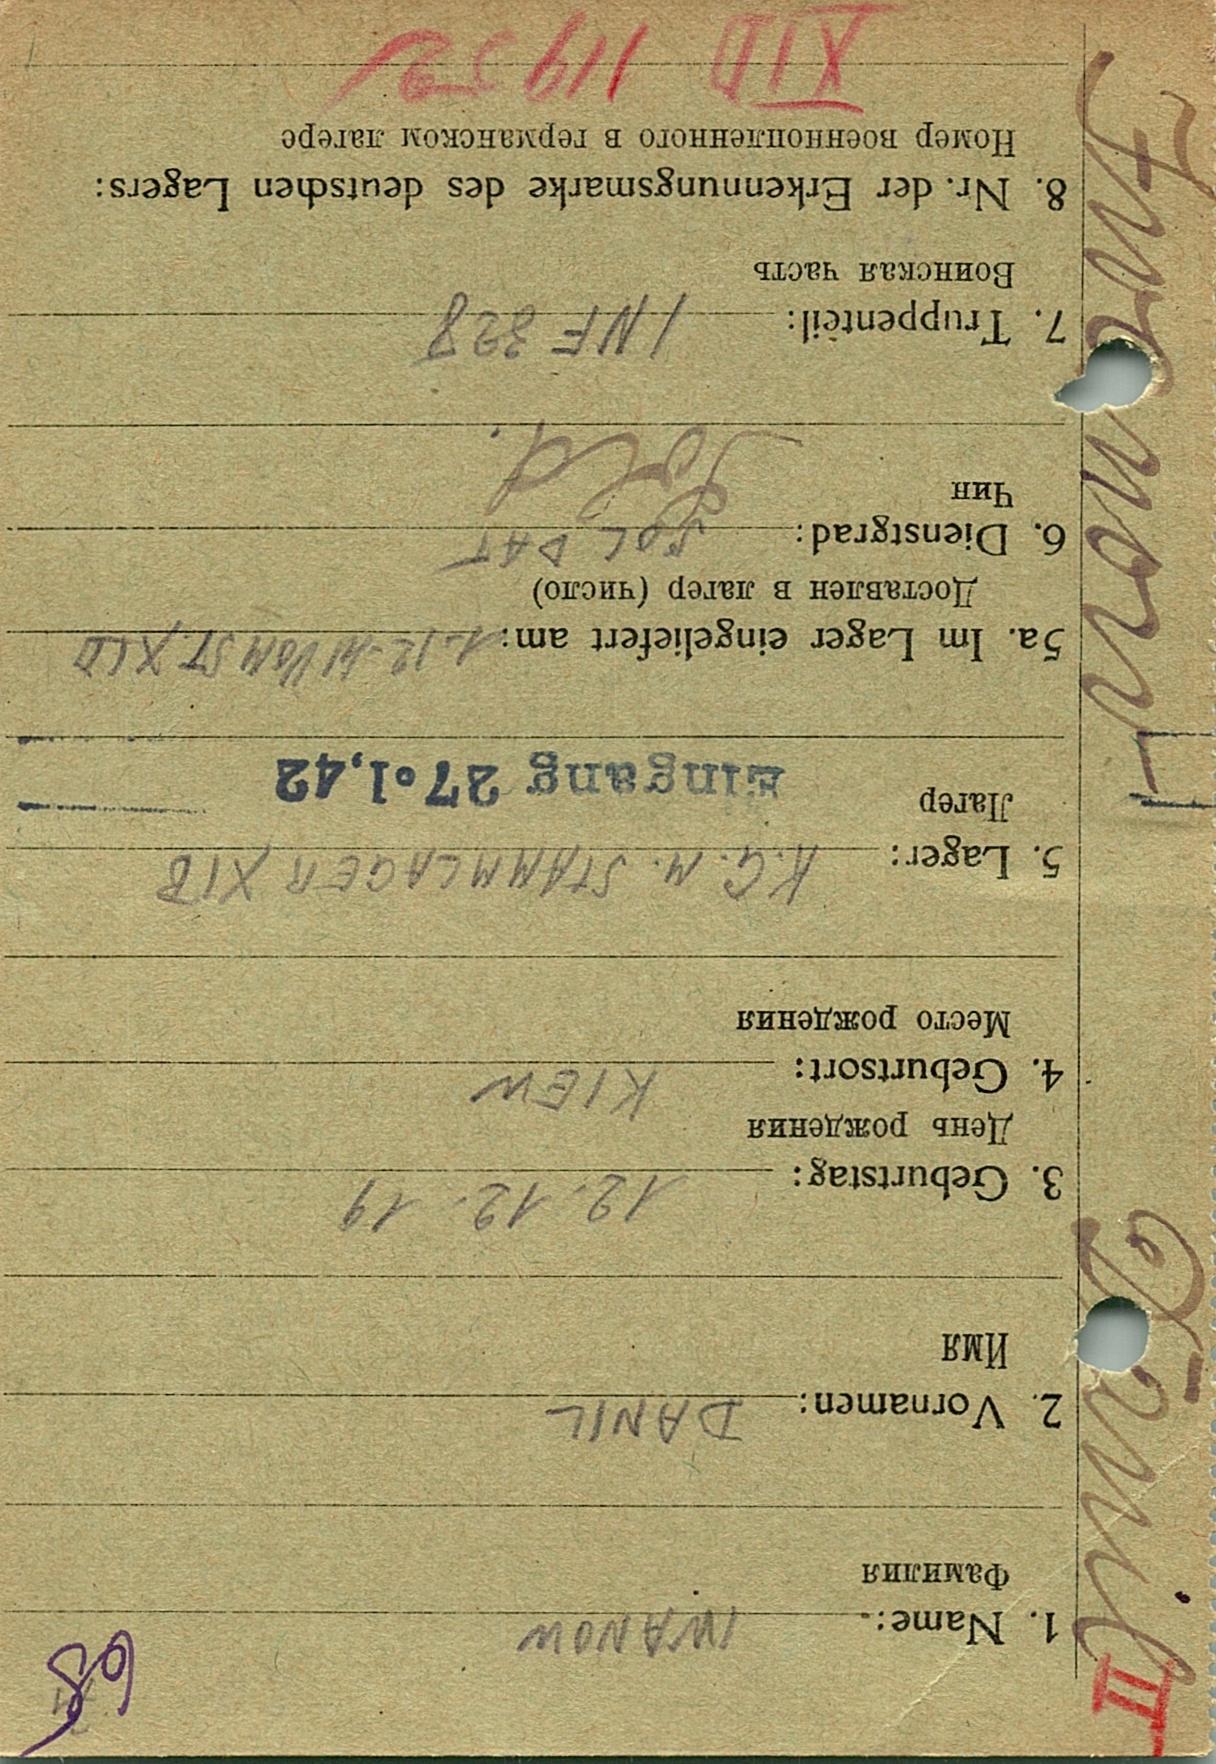 II
Danil
Iwanow
1. Name: IWANOW
Фамилия
2. Vornamen: DANIL
Имя
3. Geburtstag: 12. 12. 19
День рождения
4. Geburtsort: KIEW
Место рождения
5. Lager: K.G.M. STAMMLAGER
Лагер
Eingang 27.1.42
5a. Im Lager eingeliefert am: 1.12.41 VOM ST. XID
Доставлен в лагер (число)
6. Dienstgrad: SOLDAT
Чин
Sold.
7. Truppenteil: INF 328
Воинская часть
8. Nr. der Erkennungsmarke des deutschen Lagers:
Номер военнопленного в германском лагере
XID